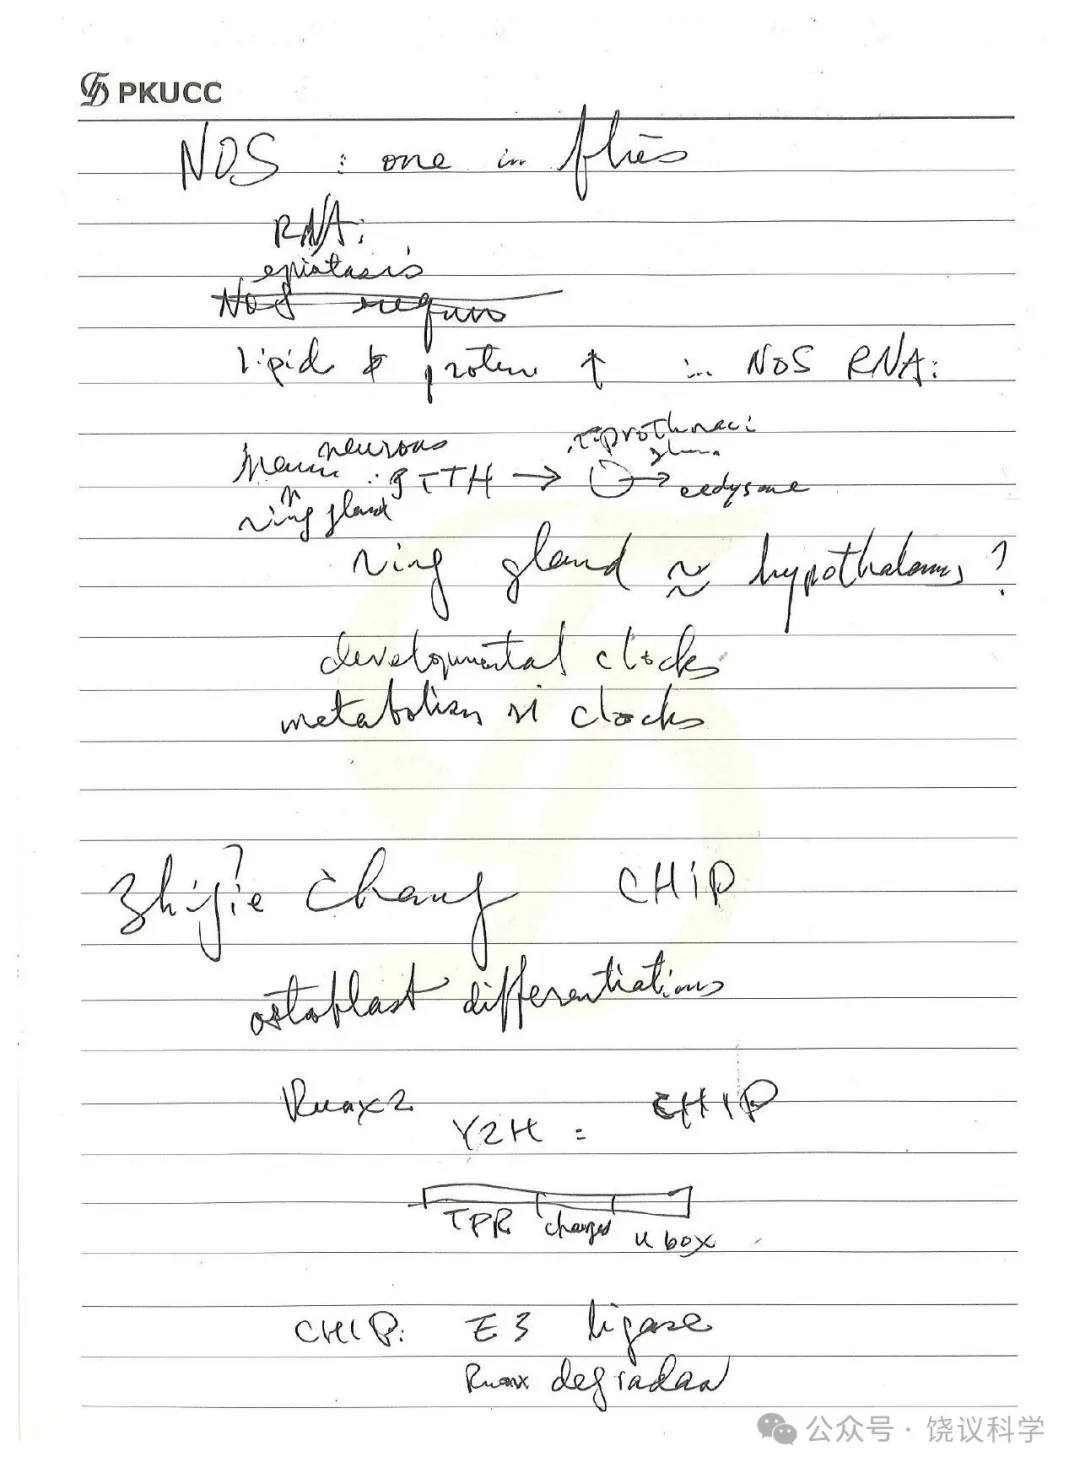 PKUCC
NOS : one in flies
RNAi
epistasis
NOS
lipid & protein ↑ in NOS RNAi
neurons prothoraci
PTTH → → ecdysone
ring gland
ring gland ≈ hypothalamus ?
developmental clocks
metabolism clocks
Zhijie Chang CHIP
ostoblast differentiation
Runx2 CHIP
Y2H :
TPR charged U box
CHIP: E3 ligase
Runx degradan
公众号 · 饶议科学